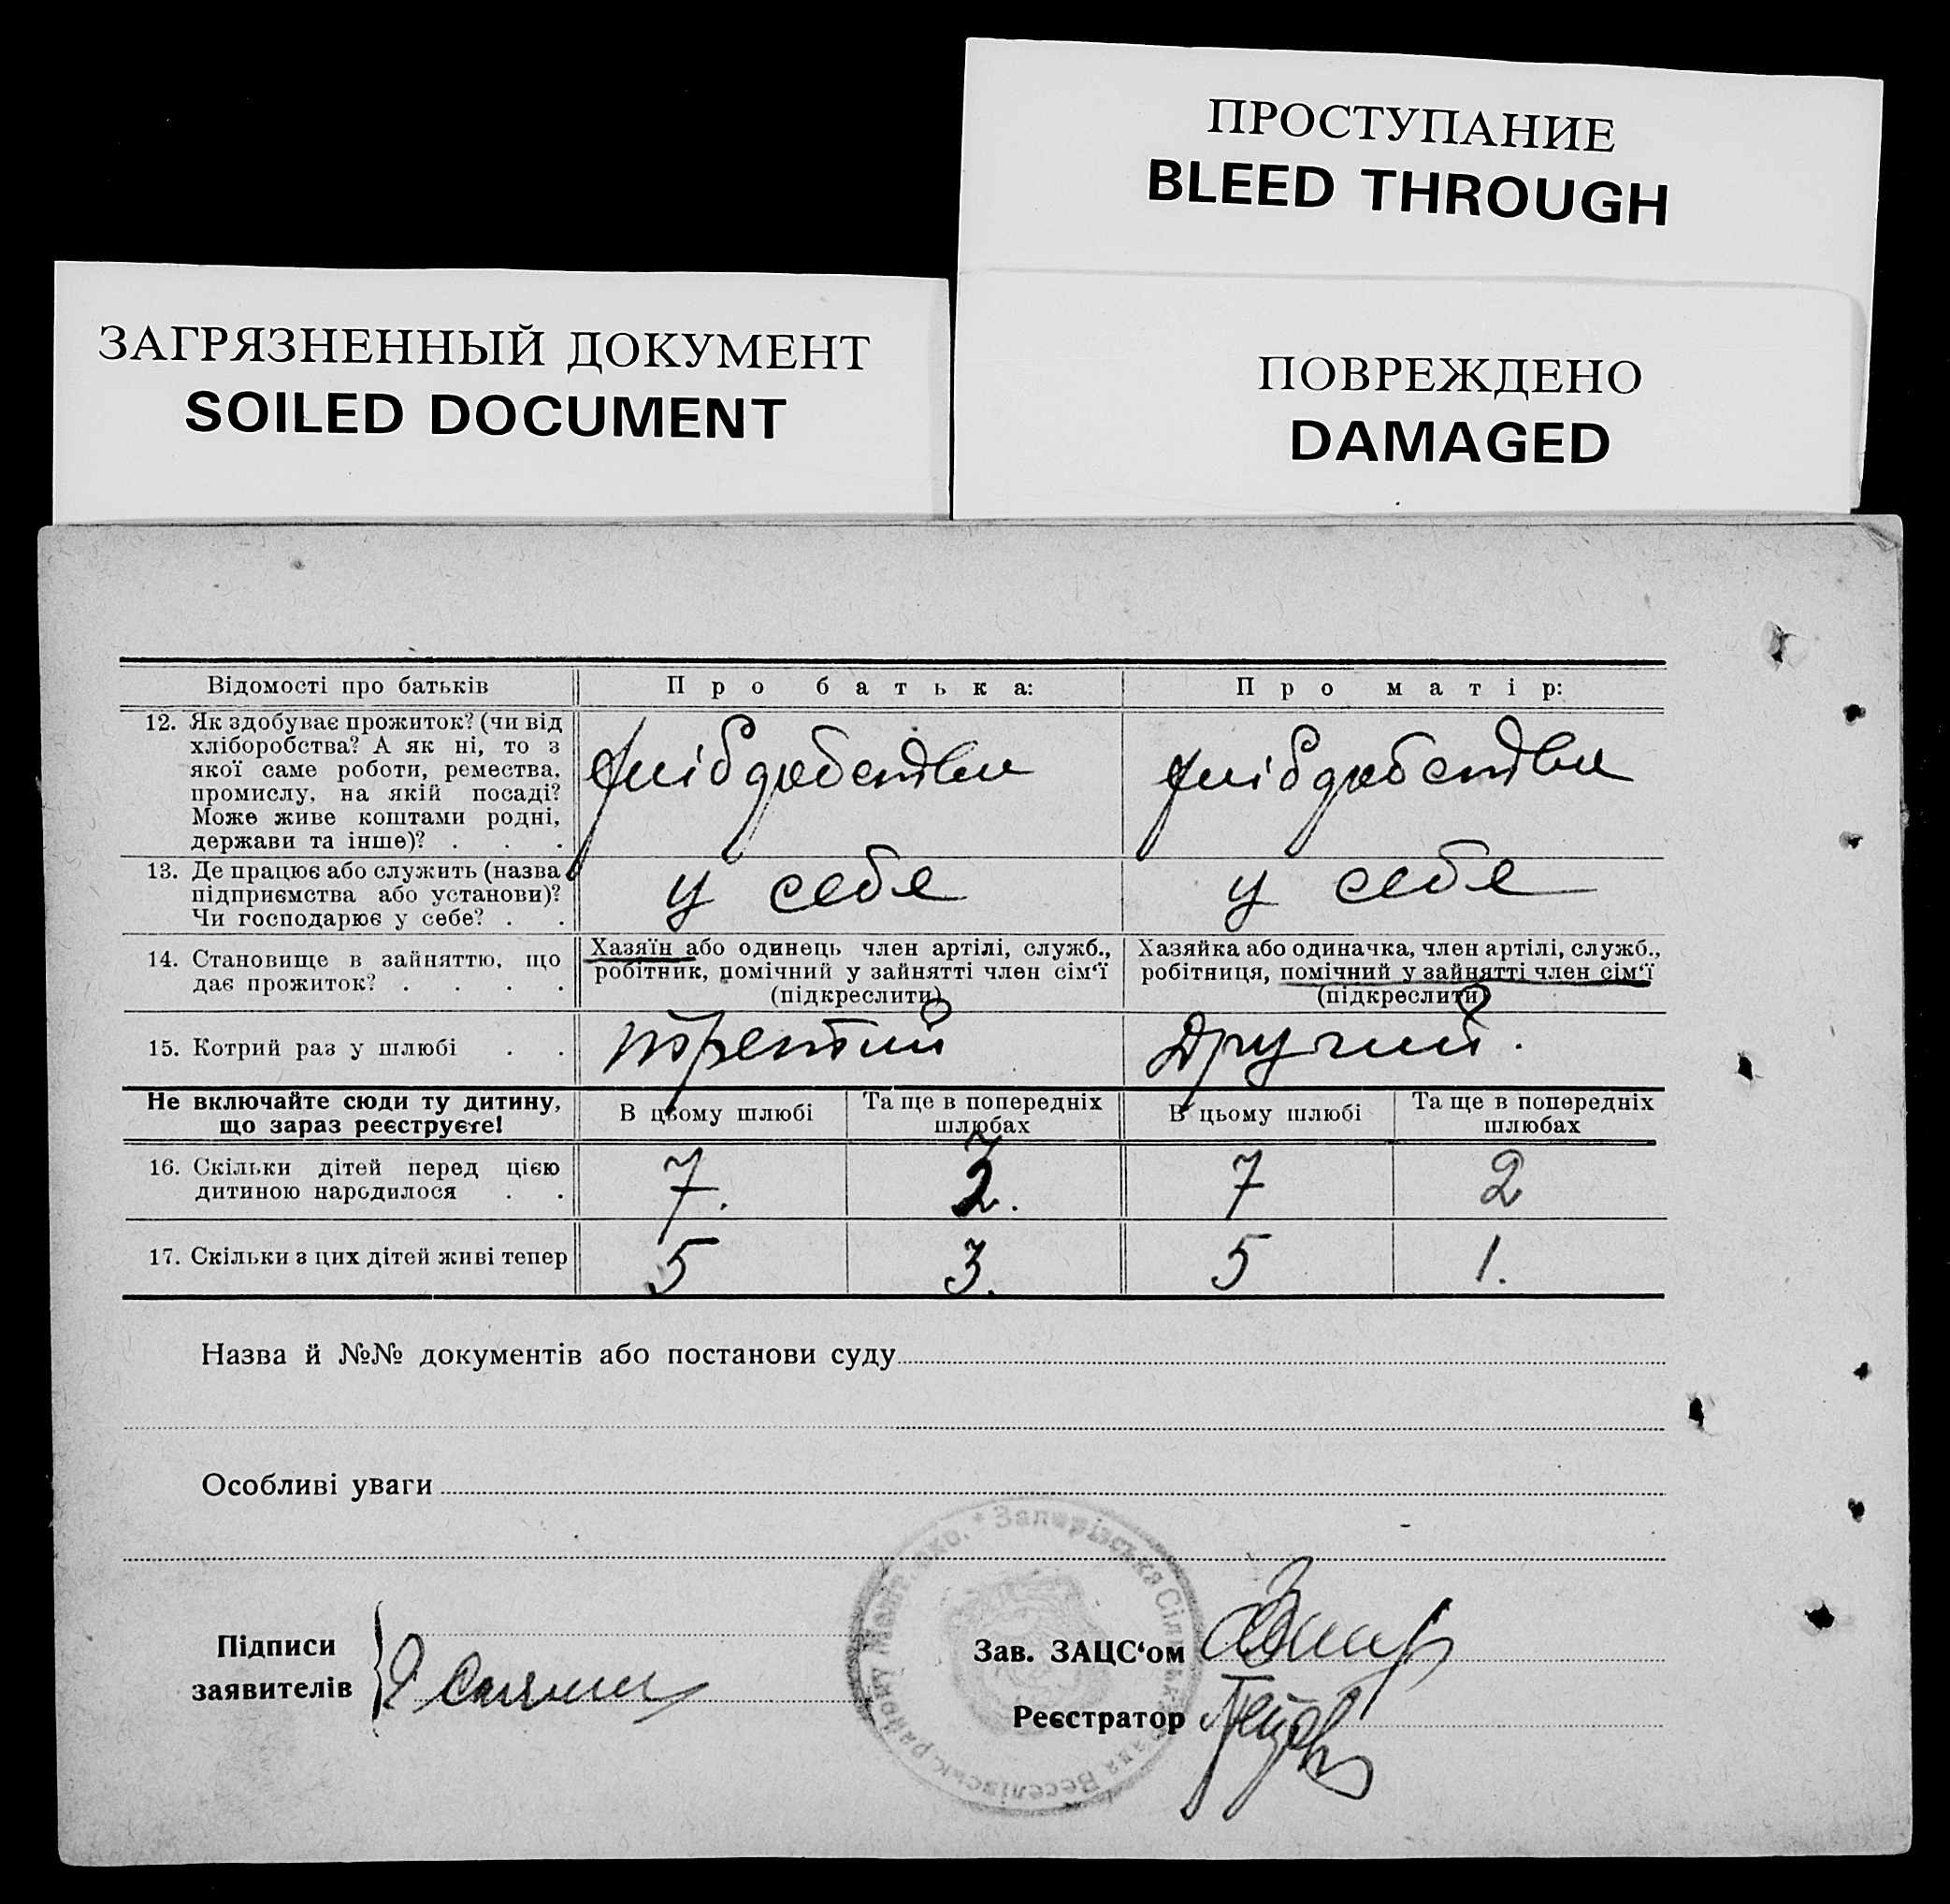 ПРОСТУПАНИЕ
BLEED THROUGH
ЗАГРЯЗНЕННЫЙ ДОКУМЕНТ
SOILED DOCUMENT
ПОВРЕЖДЕНО
DAMAGED
Відомості про батьків Про батька: Про матір:
12. Як здобуває прожиток? (чи від
хліборобства? А як ні, то з
якої саме роботи, ремества,
промислу, на якій посаді?
Може живе коштами родні,
держави та інше)? . . .
13. Де працює або служить (назва
підприємства або установи)?
Чи господарює у себе? . .
у себе у себе
14. Становище в зайняттю, що
дає прожиток? . . . .
Хазяїн або одинець член артілі, служб.,
робітник, помічний у зайнятті член сім‘ї
(підкреслити)
Хазяйка або одиначка, член артілі, служб.,
робітниця, помічний у зайнятті член сім‘ї
(підкреслити)
15. Котрий раз у шлюбі . .
третий другий.
Не включайте сюди ту дитину,
що зараз реєструєте!
В цьому шлюбі Та ще в попередніх
шлюбах
В цьому шлюбі Та ще в попередніх
шлюбах
16. Скільки дітей перед цією
дитиною народилося . .
7. 7 2
17. Скільки з цих дітей живі тепер 5 3. 5 1.
Назва й №№ документів або постанови суду
Особливі уваги
Підписи
заявителів
Зав. ЗАЦС‘ом
Реєстратор